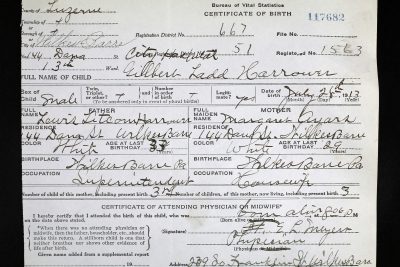 Luzerne
Bureau of Vital Statistics
CERTIFICATE OF BIRTH
117682
Registration District 667
File No.
Wilkes Barre
144 Dana St
City Hospital 51
Registered 1563
13th
FULL NAME OF CHILD Wilbert Ladd Harrower
Sex
male
Twin, Triplet, or other?
Number
yes
July 28th 1913
(To be answered only in event of plural births)
(Month) (Day) (Year)
FULL NAME FATHER
FULL MAIDEN NAME MOTHER
Lewis Harrower
Margaret
RESIDENCE
144 Dana St Wilkes Barre
144 Dana St. Wilkes Barre
White
AGE AT LAST BIRTHDAY 33
White
AGE AT LAST BIRTHDAY 29
BIRTHPLACE
Wilkes Barre Pa
BIRTHPLACE
Wilkes Barre Pa
OCCUPATION
Superintendent
OCCUPATION
Housewife
Number of child of this mother, including present birth 3rd
Number of children, of this mother, now living, including present birth 3
CERTIFICATE OF ATTENDING PHYSICIAN OR MIDWIFE*
I hereby certify that I attended the birth of this child, who was
born alive
on the date above stated.
*When there was no attending physician or midwife, then the father, householder, etc., should make this return. A stillborn child is one that neither breathes nor shows other evidence of life after birth.
E. L. Meyers
Physician
(Physician or Midwife)
Given name added from a supplemental report
239 So. Franklin St Wilkes Barre